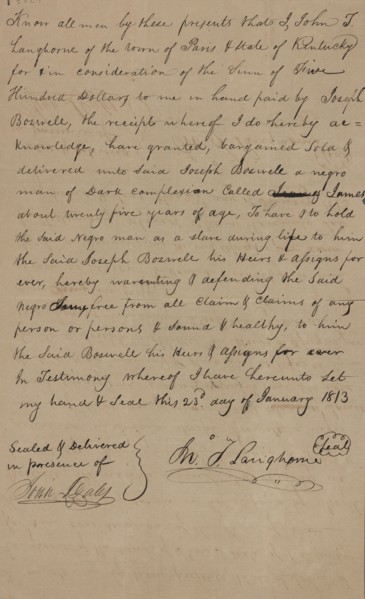 Know all men by these presents that I, John T.
Langhorne of the town of Paris & state of Kentucky
for & in consideration of the Sum of Five
Hundred Dollars to me in hand paid by Joseph
Boswell, the receipts whereof I do hereby ac=
knowledge, have granted, bargained Sold &
delivered unto Said Joseph Boswell a negro
man of Dark complexion Called James
about twenty five years of age, To have & to hold
the Said Negro man as a slave during life to him
the Said Joseph Boswell his Heirs & assigns for
ever, hereby warenting & defending the Said
Negro free from all Claim & Claims of any
person or persons & Sound & healthy, to him
the Said Boswell his Heirs & assigns for ever
In Testimony whereof I have hereunto Set
my hand & Seal this 23d day of January 1813
Sealed & Delivered
in presence of
Jno. T. Langhorne
Seal
John